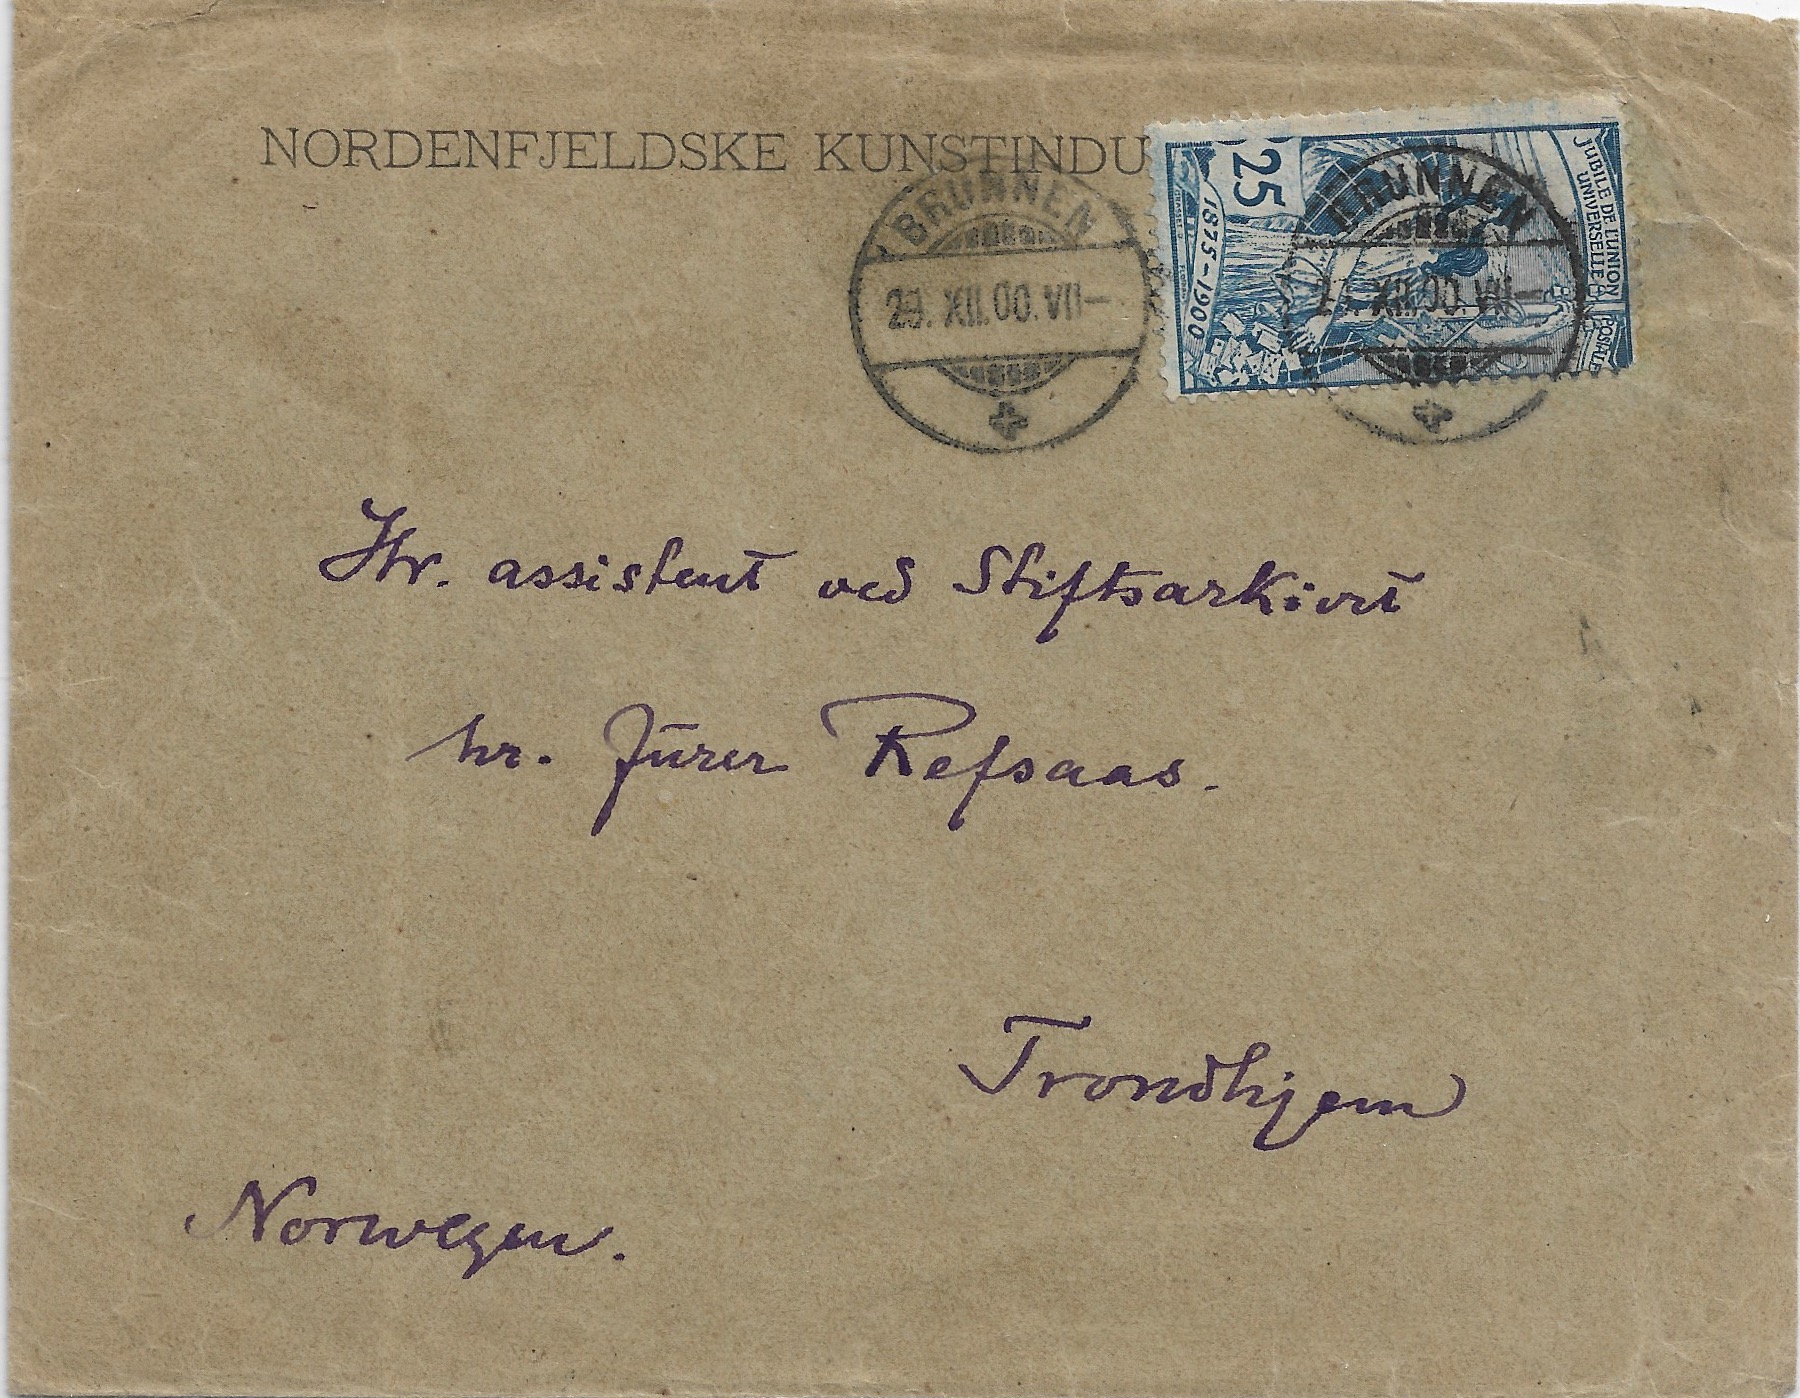 NORDENFJELDSKE KUNSTINDU
25
1875-1900
JUBILÉ DE L'UNION
UNIVERSELLE
BRUNNEN
29. XII. 00. VII-
BRUNNEN
XII. 00. VII-
Hr. assistent ved Stiftsarkivet
hr. Jürer Refsaas.
Trondhjem
Norwegen.